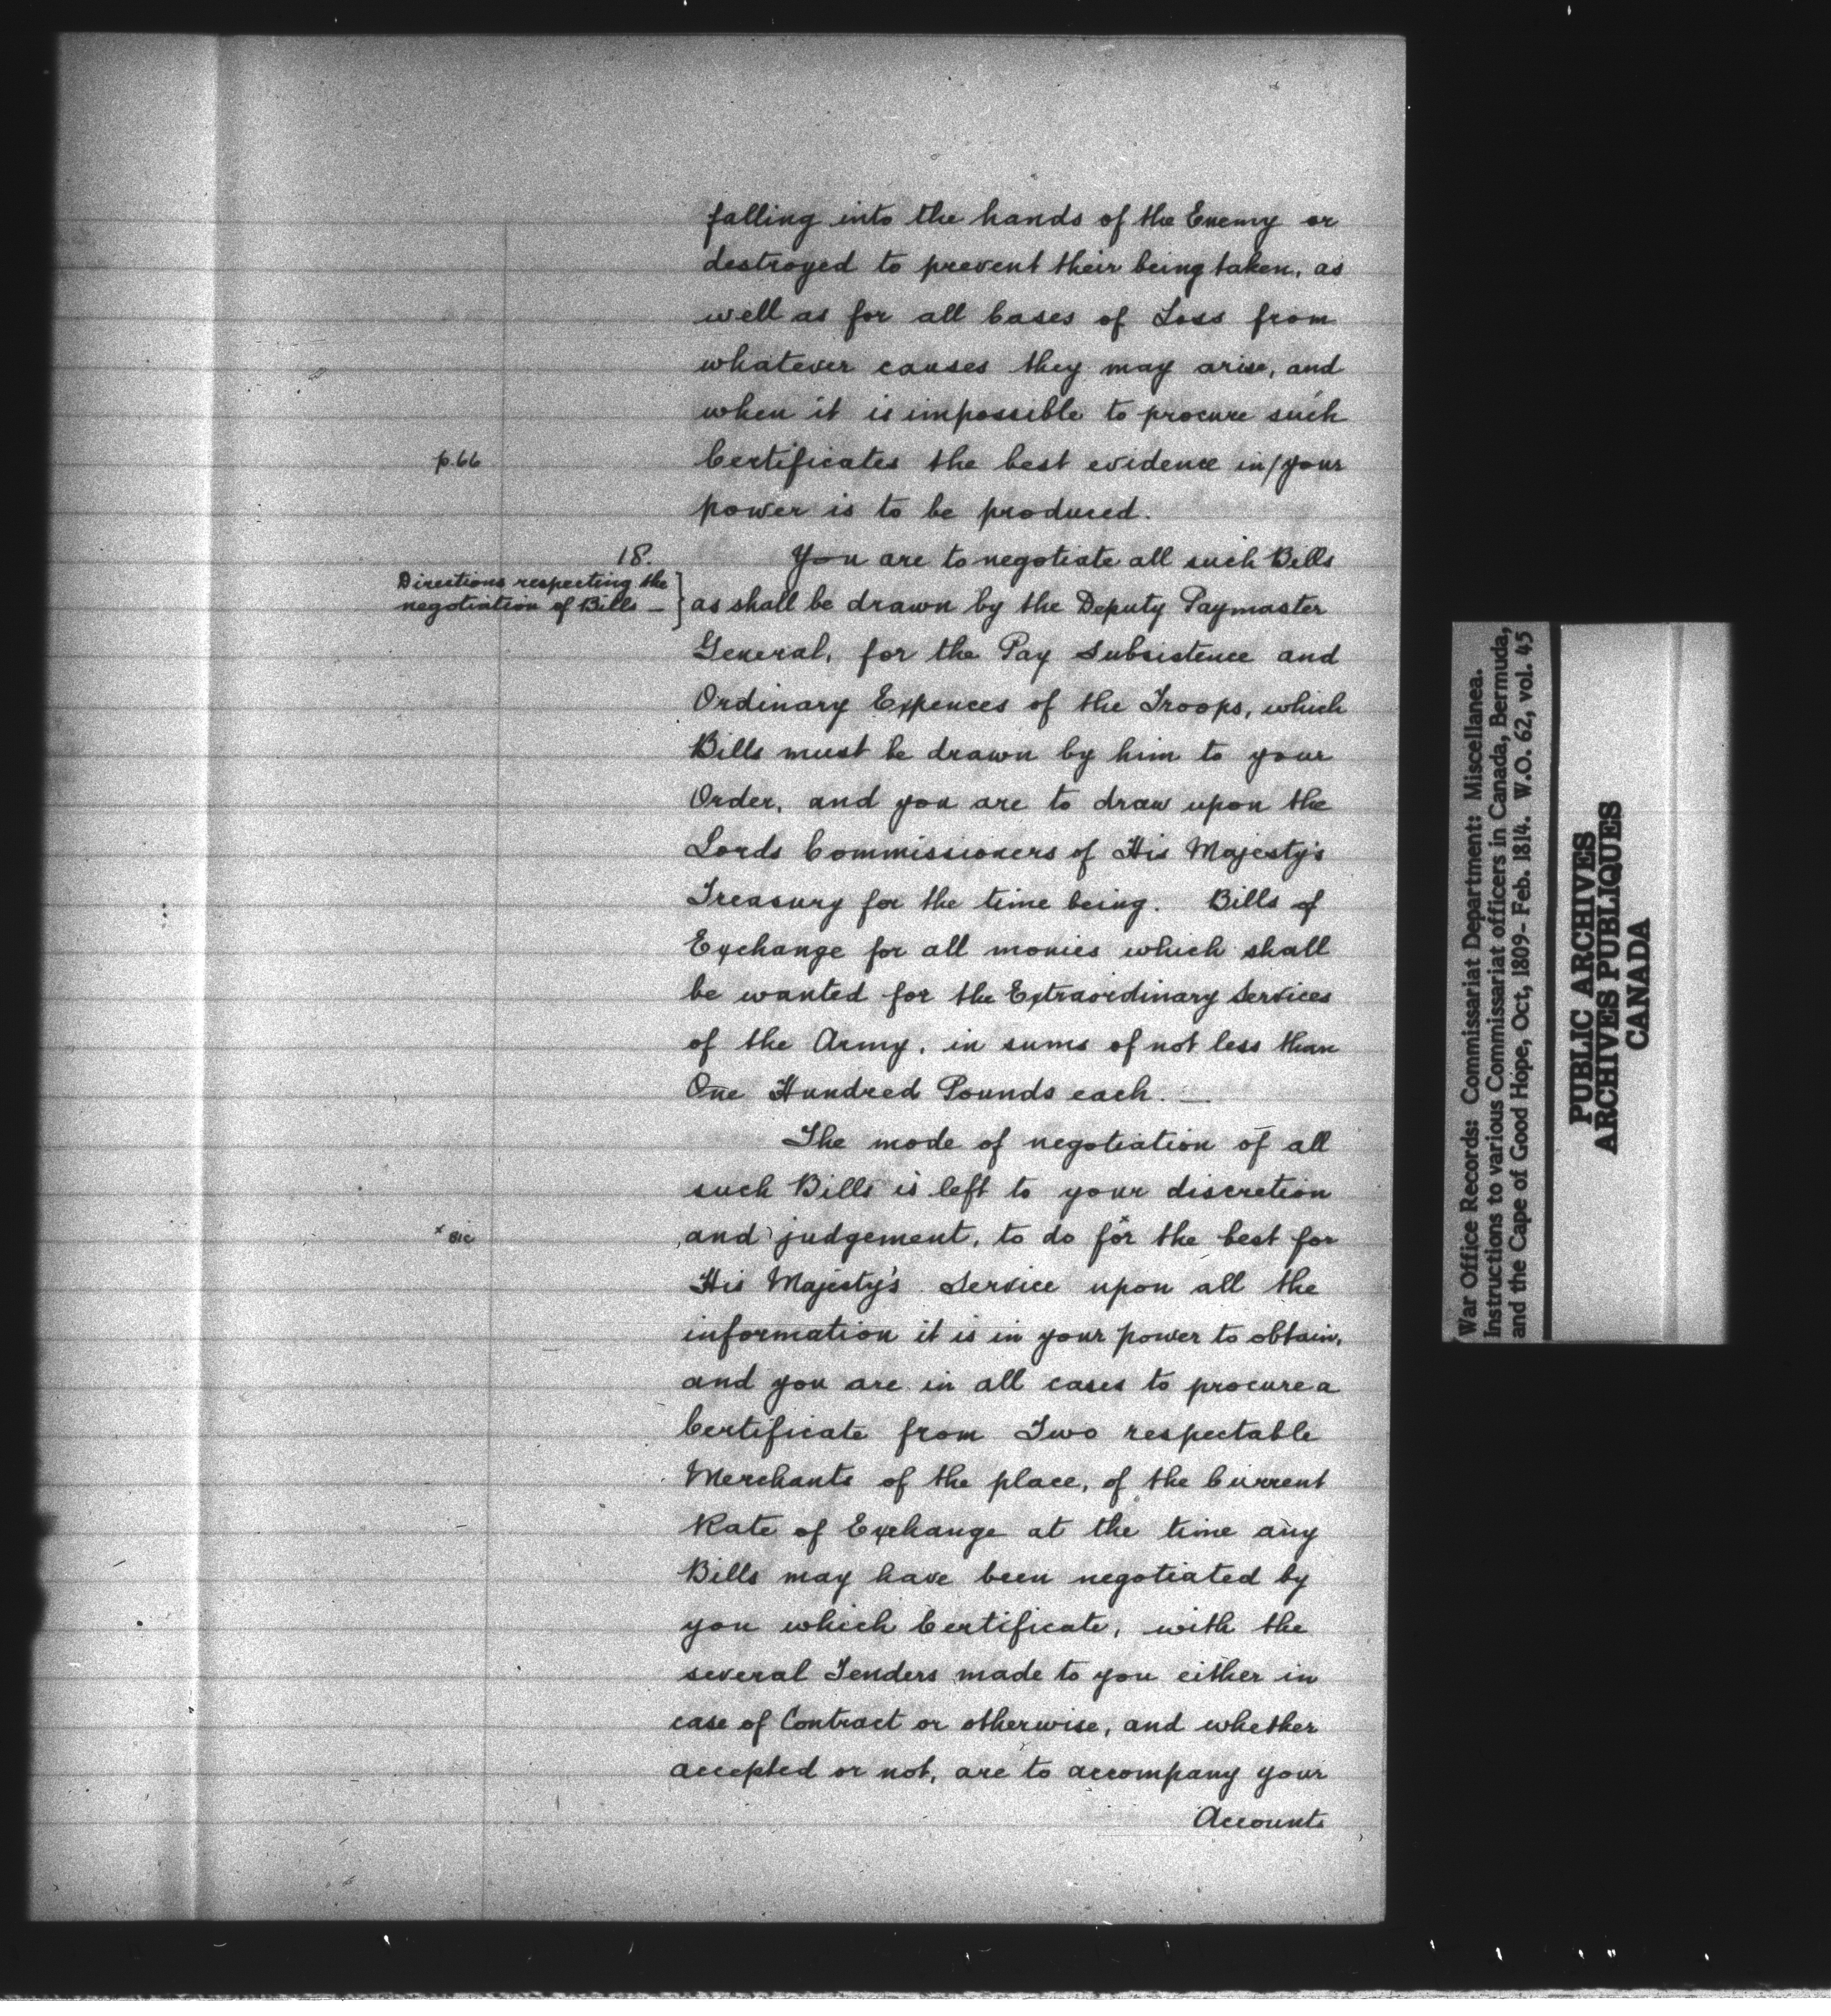 falling into the hands of the Enemy or
destroyed to prevent their being taken, as
well as for all Cases of Loss from
whatever causes they may arise, and
when it is impossible to procure such
p.66
Certificates the best evidence in/your
power is to be produced.
18.
Directions respecting the
negotiation of Bills —
You are to negotiate all such Bills
as shall be drawn by the Deputy Paymaster
General, for the Pay Subsistence and
Ordinary Expences of the Troops, which
Bills must be drawn by him to your
Order, and you are to draw upon the
Lords Commissioners of His Majesty's
Treasury for the time being. Bills of
Exchange for all monies which shall
be wanted for the Extraordinary Services
of the Army, in sums of not less than
One Hundred Pounds each. —
The mode of negotiation of all
such Bills is left to your discretion
x sic
and judgement, to do for x the best for
His Majesty's Service upon all the
information it is in your power to obtain,
and you are in all cases to procure a
Certificate from Two respectable
Merchants of the place, of the Current
Rate of Exchange at the time any
Bills may have been negotiated by
you which Certificate, with the
several Tenders made to you either in
case of Contract or otherwise, and whether
accepted or not, are to accompany your
Accounts
War Office Records: Commissariat Department: Miscellanea.
Instructions to various Commissariat officers in Canada, Bermuda,
and the Cape of Good Hope, Oct, 1809- Feb. 1814. W.O. 62, vol. 45
PUBLIC ARCHIVES
ARCHIVES PUBLIQUES
CANADA